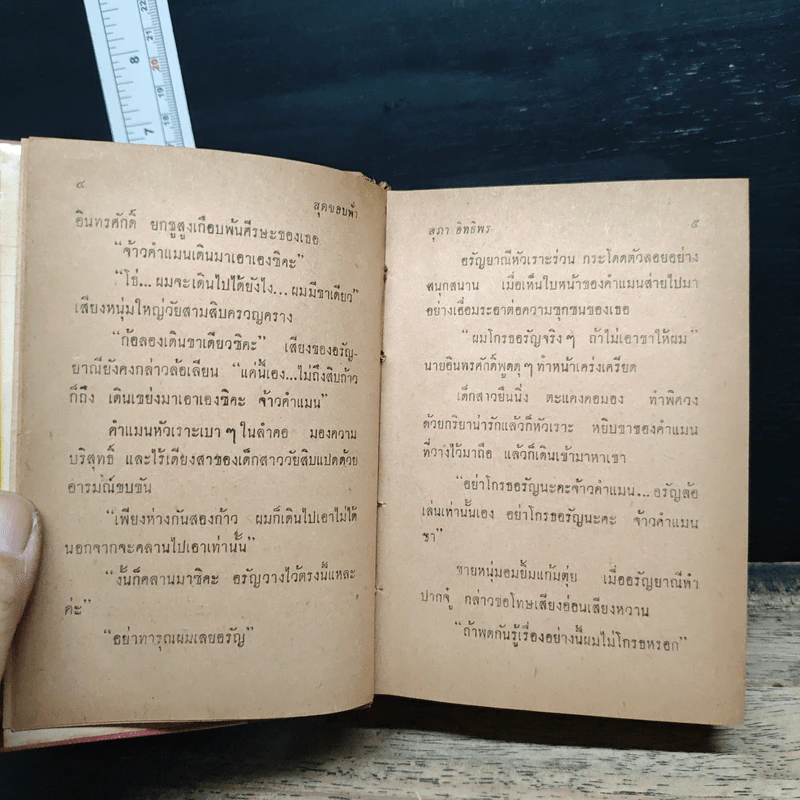 8
22
21
20
7
19
18
17
๔
สุดขอบฟ้า
อินทรศักดิ์ ยกชูสูงเกือบพ้นศีรษะของเธอ
“จ้าวคำแมนเดินมาเอาเองซิคะ”
“โธ่... ผมจะเดินไปได้ยังไง... ผมมีขาเดียว”
เสียงหนุ่มใหญ่วัยสามสิบครวญคราง
“ก้อลองเดินขาเดียวซิคะ” เสียงของอรัญ-
ยาณียังคงกล่าวล้อเลียน “แค่นี้เอง...ไม่ถึงสิบก้าว
ก็ถึง เดินเขย่งมาเอาเองซิคะ จ้าวคำแมน”
คำแมนหัวเราะเบา ๆ ในลำคอ มองความ
บริสุทธิ์ และไร้เดียงสาของเด็กสาววัยสิบแปดด้วย
อารมณ์ขบขัน
“เพียงห่างกันสองก้าว ผมก็เดินไปเอาไม่ได้
นอกจากจะคลานไปเอาเท่านั้น”
“งั้นก็คลานมาซิคะ อรัญวางไว้ตรงนี้แหละ
ค่ะ”
“อย่าทารุณผมเลยอรัญ”
สุภา อิทธิพร
๕
อรัญยาณีหัวเราะร่วน กระโดดตัวลอยอย่าง
สนุกสนาน เมื่อเห็นใบหน้าของคำแมนส่ายไปมา
อย่างเอื่อมระอาต่อความซุกซนของเธอ
“ผมโกรธอรัญจริง ๆ ถ้าไม่เอาขาให้ผม”
นายอินทรศักดิ์พูดดุ ๆ ทำหน้าเคร่งเครียด
เด็กสาวยืนนิ่ง ตะแคงคอมอง ทำพิศวง
ด้วยกริยาน่ารักแล้วก็หัวเราะ หยิบขาของคำแมน
ที่วางไว้มาถือ แล้วก็เดินเข้ามาหาเขา
“อย่าโกรธอรัญนะคะจ้าวคำแมน... อรัญล้อ
เล่นเท่านั้นเอง อย่าโกรธอรัญนะคะ จ้าวคำแมน
ขา”
ชายหนุ่มอมยิ้มแก้มตุ่ย เมื่ออรัญยาณีทำ
ปากจู๋ กล่าวขอโทษเสียงอ่อนเสียงหวาน
“ถ้าพูดกันรู้เรื่องอย่างนี้ผมไม่โกรธหรอก”